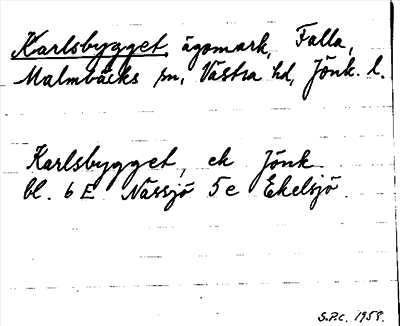 Karlsbygget, ägomark, Falla,
Malmbäcks sn, Västra hd, Jönk. l.
Karlsbygget, ek Jönk.
bl. 6 E Nässjö 5 e Ekelsjö.
S.P.C. 1958.